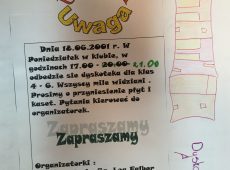 Uwaga
Dnia 18.06.2001 r. W
Poniedziałek w klubie, w
godzinach 17.00 - 20.00- 21.00
odbędzie sie dyskoteka dla klas
4 - 6. Wszyscy mile widziani.
Prosimy o przyniesienie płyt i
kaset. Pytania kierować do
organizatorek.
Zapraszamy
Zapraszamy
Organizatorki :